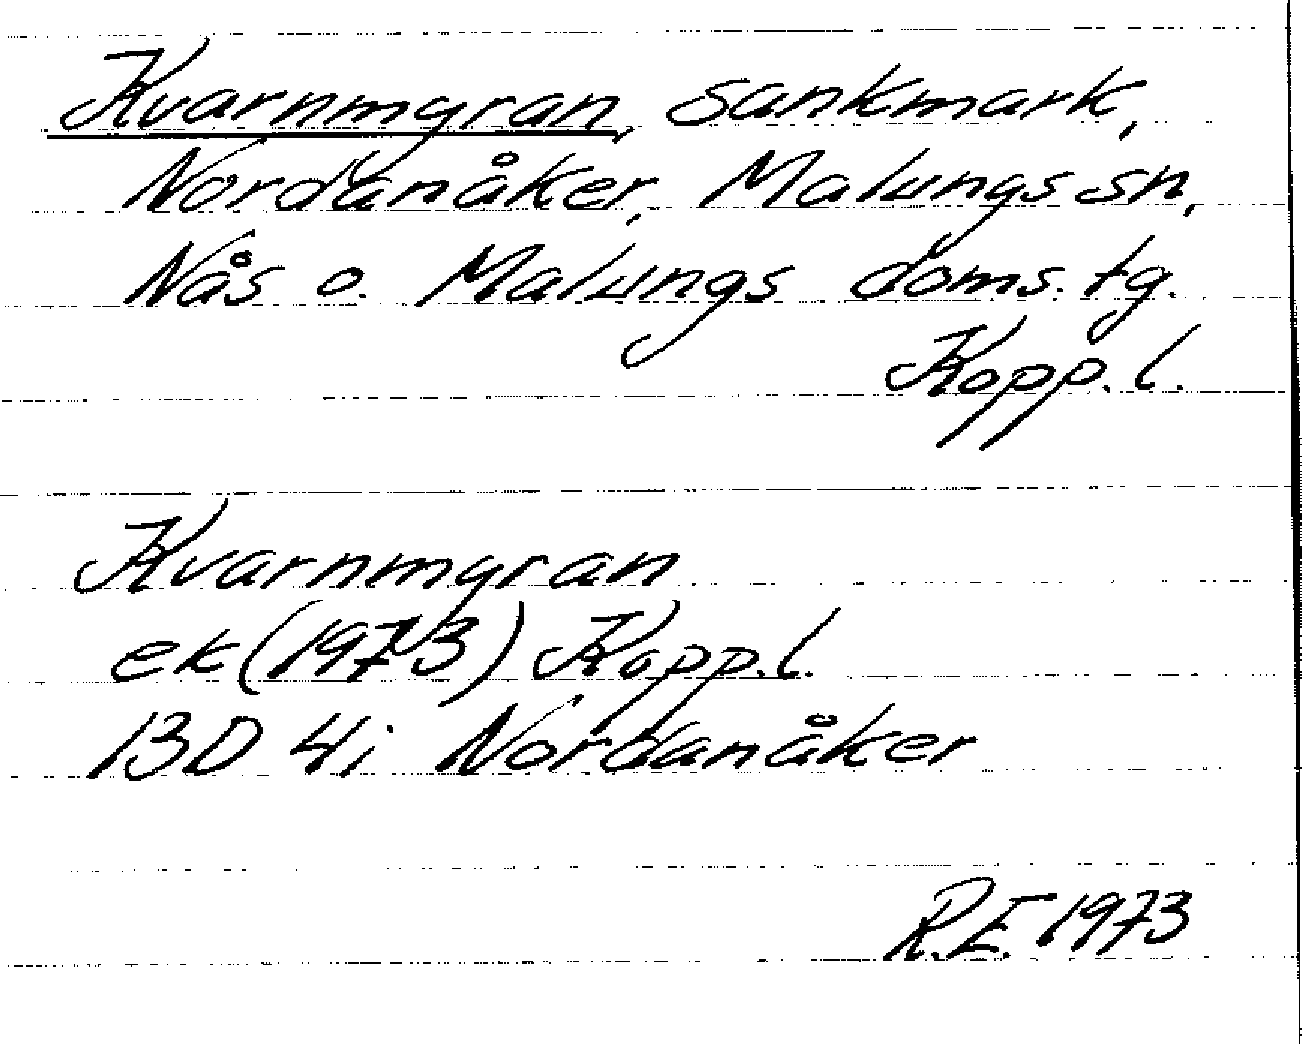 Kvarnmyran, sankmark,
Nordanåker, Malungs sn,
Nås o. Malungs doms. tg.
Kopp. l.
Kvarnmyran
ek (1973) Kopp. l.
13D 4i Nordanåker
R.E. 1973